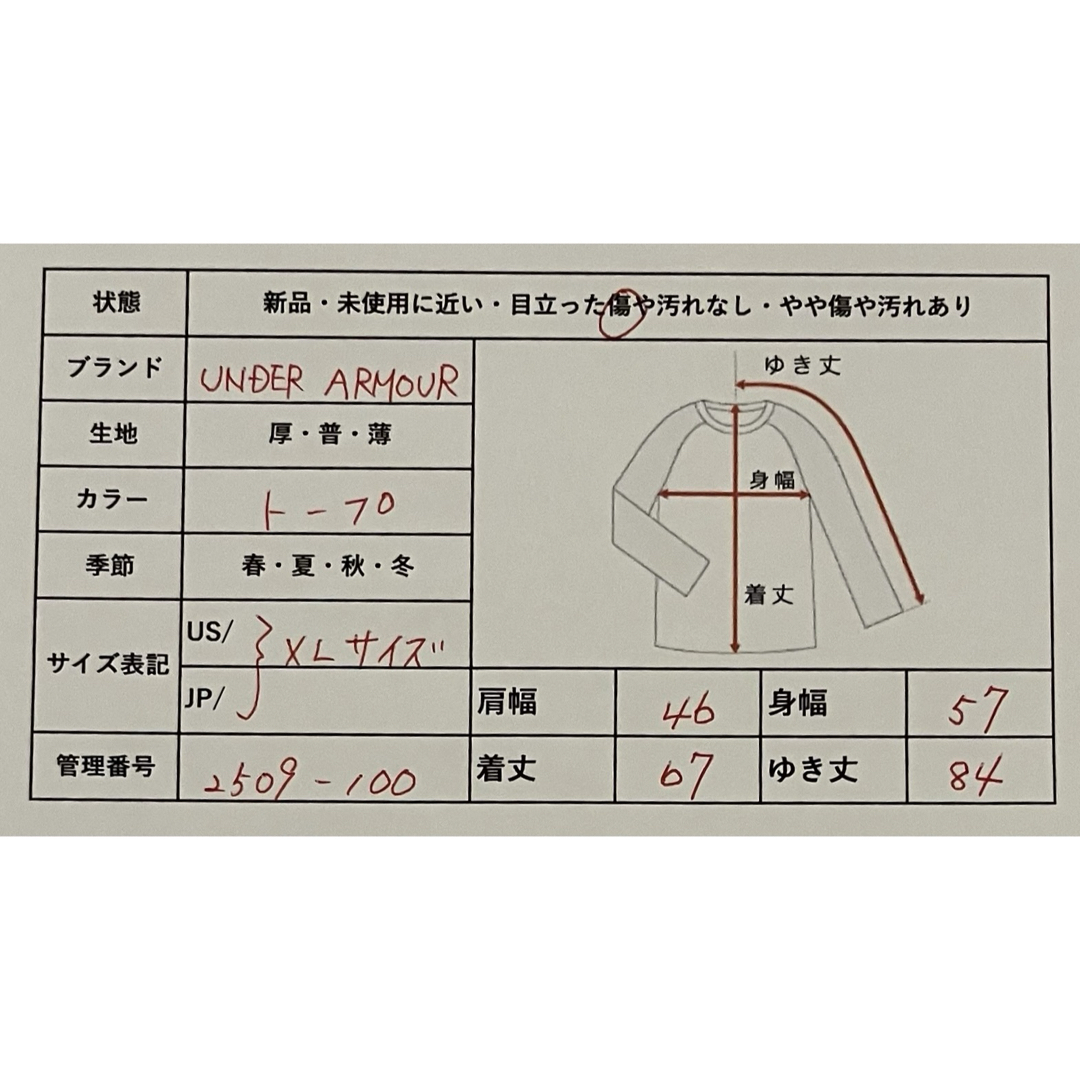 状態 新品・未使用に近い・目立った傷や汚れなし・やや傷や汚れあり
ブランド UNDER ARMOUR
生地 厚・普・薄
カラー トープ
季節 春・夏・秋・冬
サイズ表記 US/ JP/ XLサイズ
管理番号 2509-100
ゆき丈
身幅
着丈
肩幅 46 身幅 57
着丈 67 ゆき丈 84